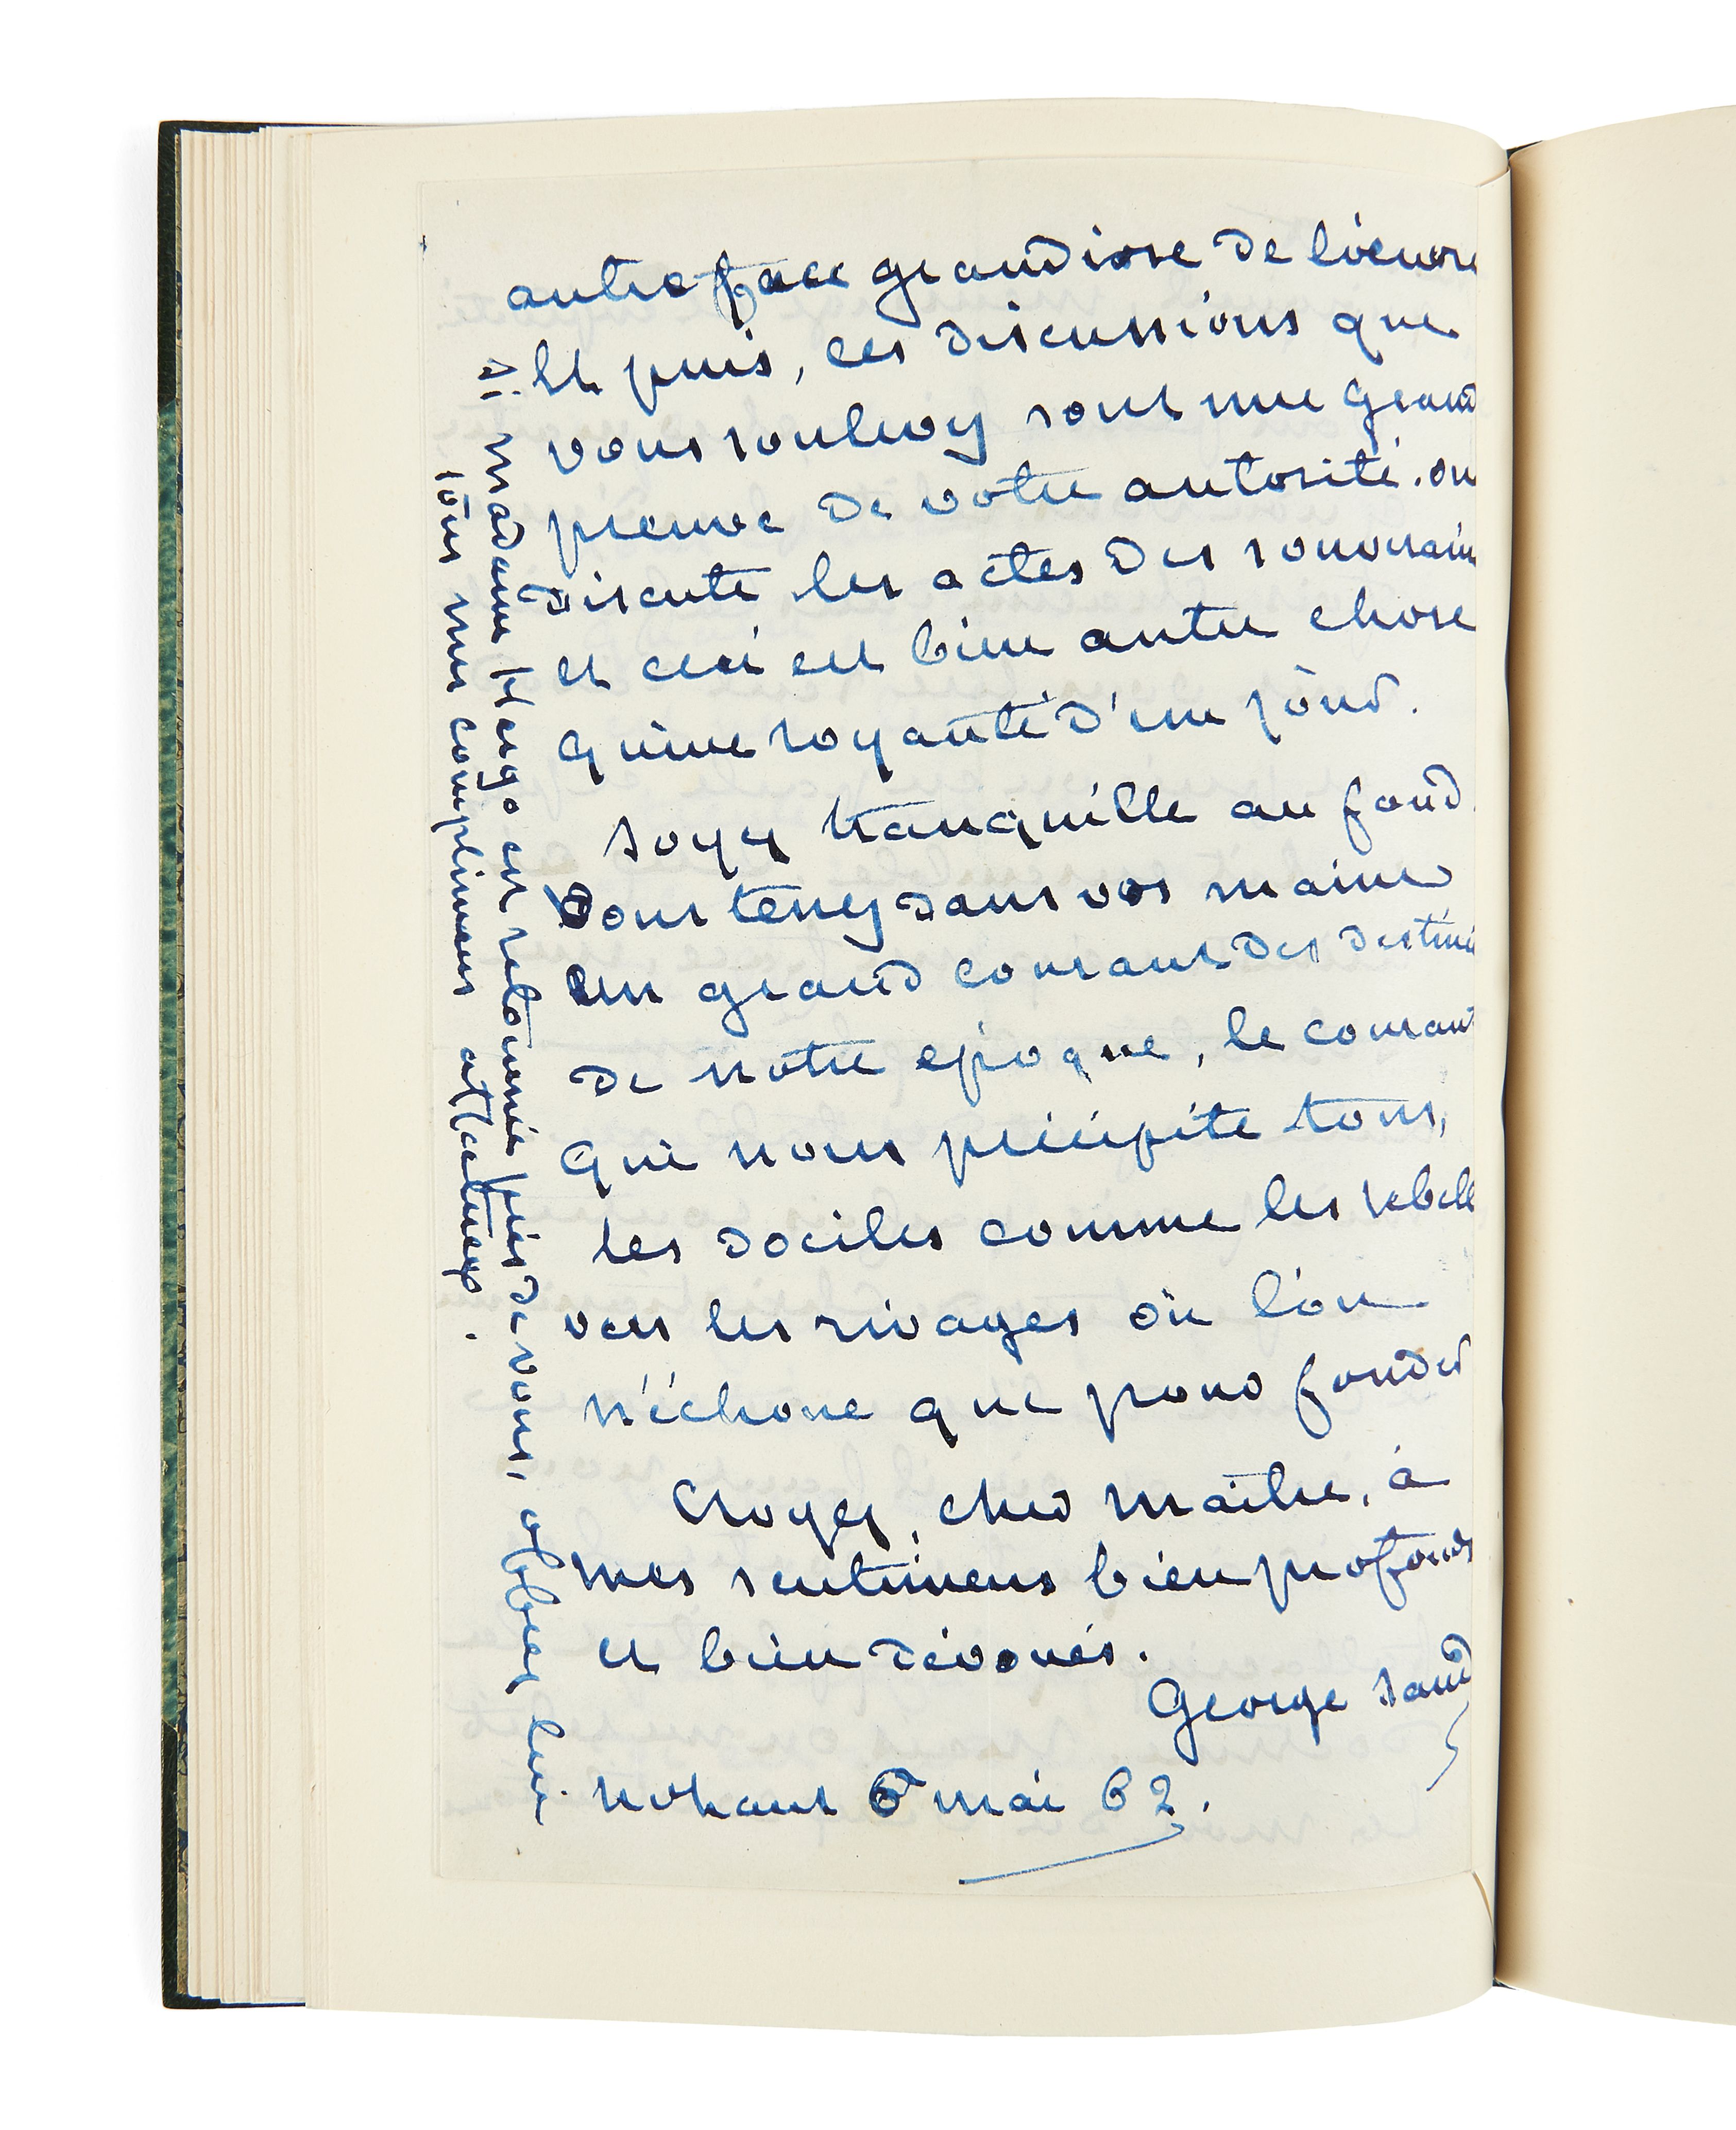 autre face grandiose de l'oeuvre
Et puis, ces discussions que
vous soulevez sont une grand
preuve de votre autorité. on
discute les actes des souverain
et ceci est bien autre chose
qu'une royauté d'un jour.
soyez tranquille au fond.
Vous tenez dans vos mains
un grand courant des destiné
de notre epoque, le courant
qui nous précipite tous,
les dociles comme les rebell
vers les rivages où l'on
n'échoue que pour fonder
Croyez, cher maître, à
mes sentimens bien profonds
et bien dévoués.
George Sand
Nohant 6 mai 62.
Si madame Hugo est retournée près de vous, offrez lui
tous mes complimens affectueux.